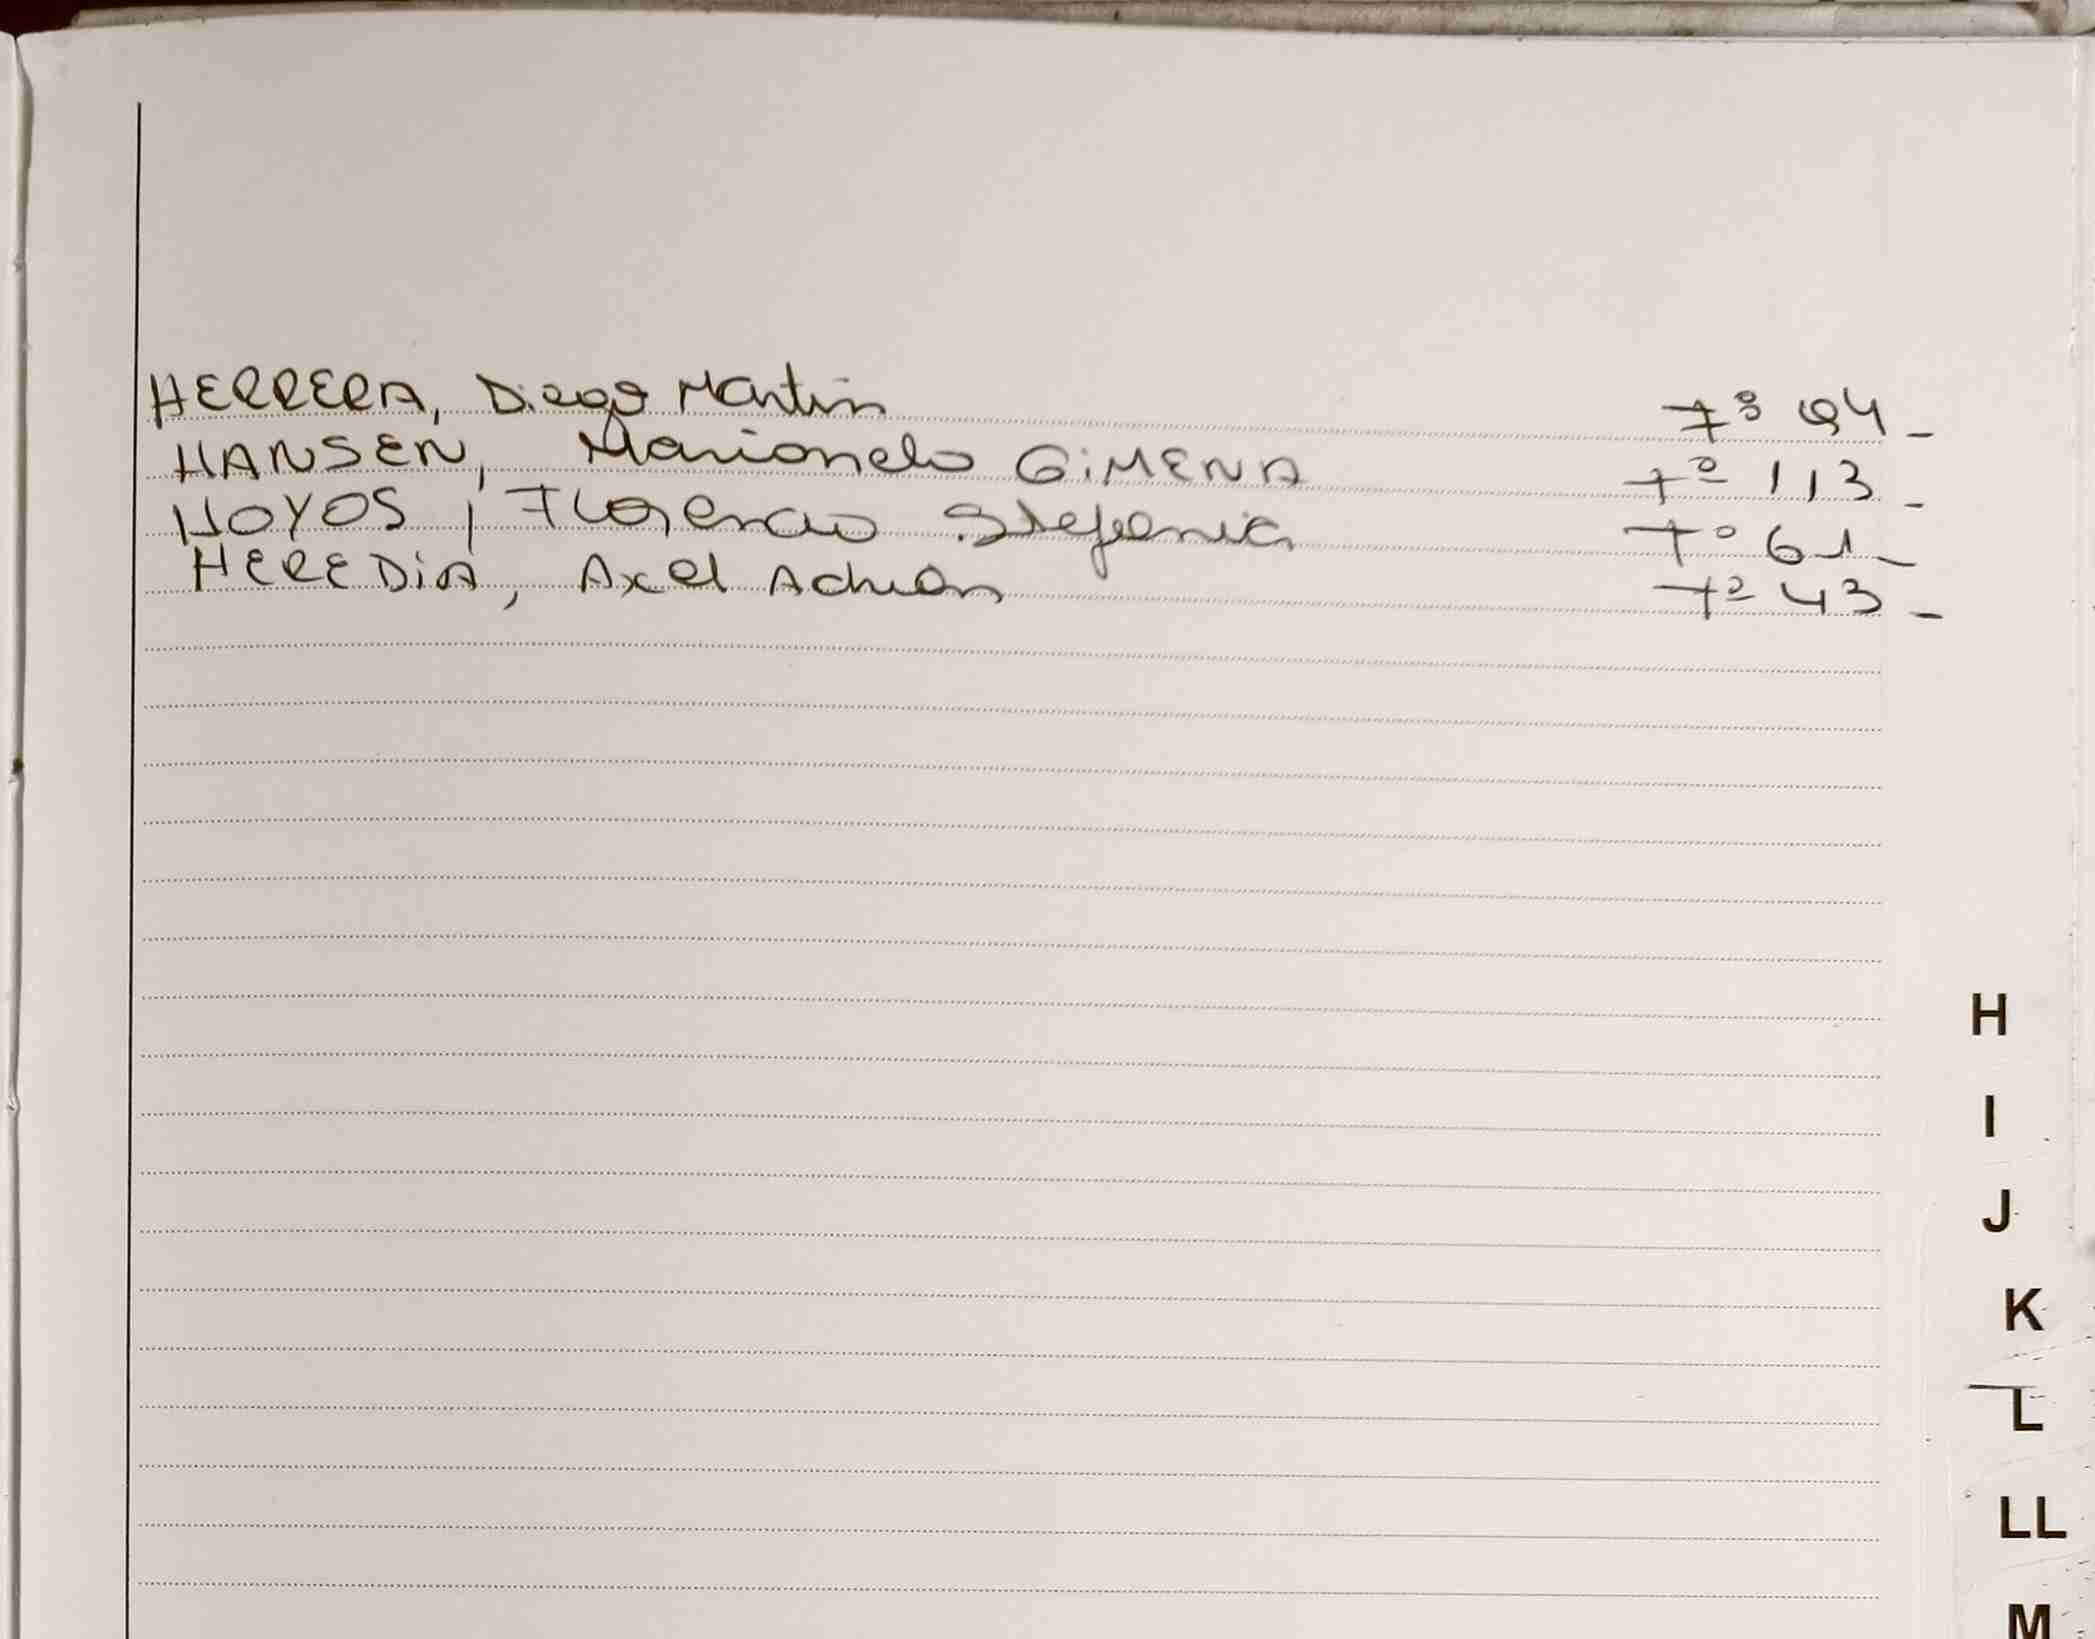 HERRERA, Diego Martin 7º 94-
HANSEN, Marianela GiMENA 7º 113-
HOYOS, Florencia Stefania 7º 61-
HEREDiA, Axel Adrian 7º 43-
H
I
J
K
L
LL
M